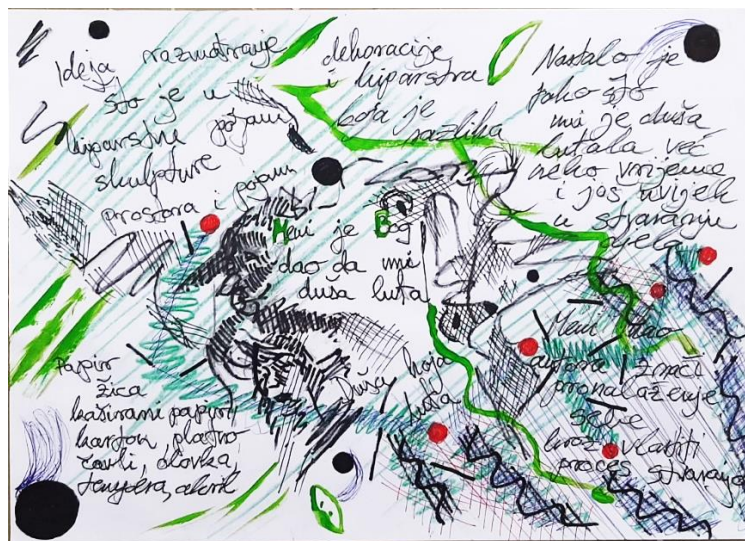 Ideja razmatranje
što je u
kiparstvu pojam
skulpture
prostora i pojam
dekoracije
i kiparstva
koja je
razlika
Nastalo je
tako što
mi je duša
lutala već
neko vrijeme
i još uvijek
u stvaranju
djela
Meni je Bog
dao da mi
duša luta
Duša koja
luta
Meni kao
znači
pronalaženje
sebe
kroz vlastiti
proces stvaranja
Papir
žica
kaširani papir
karton, platno
čavli, olovka,
tempera, akril